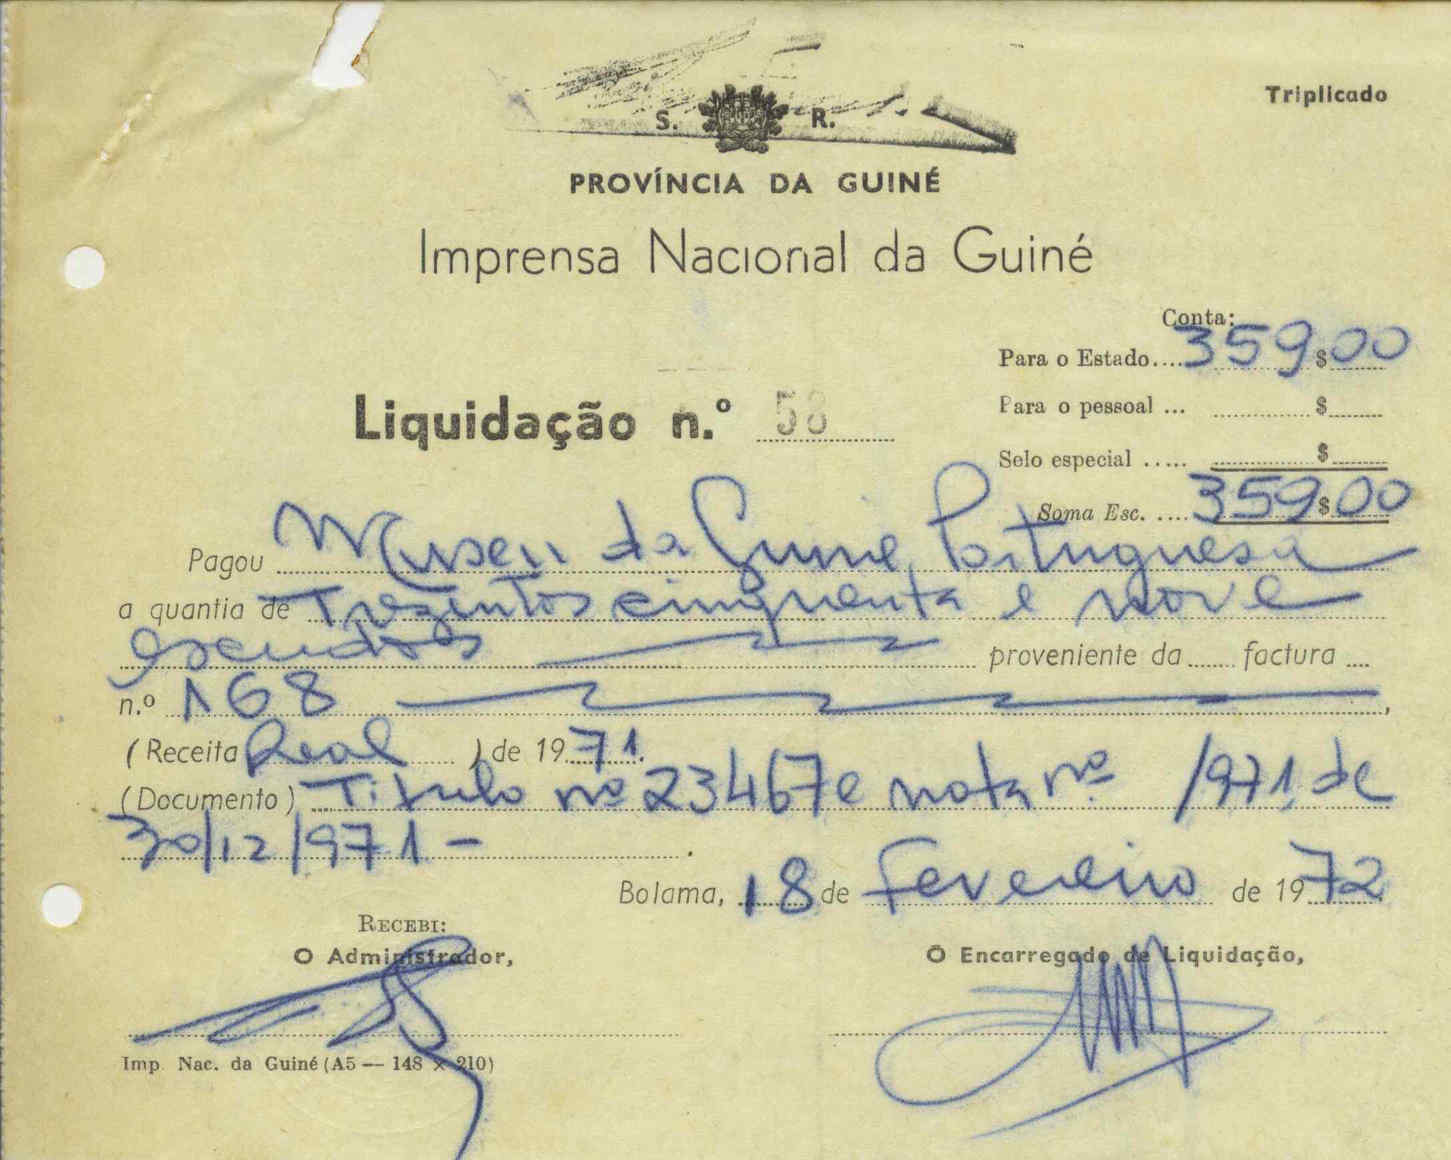 Triplicado
S. R.
PROVÍNCIA DA GUINÉ
Imprensa Nacional da Guiné
Conta:
Para o Estado.... 359$00
Para o pessoal ... $
Selo especial ..... $
Liquidação n.º 58
Soma Esc. .... 359$00
Pagou Museu da Guiné Portuguesa
a quantia de Trezentos cinquenta e nove
escudos proveniente da ...... factura ....
n.º 168
(Receita Real ) de 1971.
(Documento) Titulo nº 23467 e nota nº /971, de
30/12/971 -
Bolama, 18 de Fevereiro de 1972
RECEBI:
O Administrador,
O Encarregado de Liquidação,
Imp. Nac. da Guiné (A5 — 148 × 210)